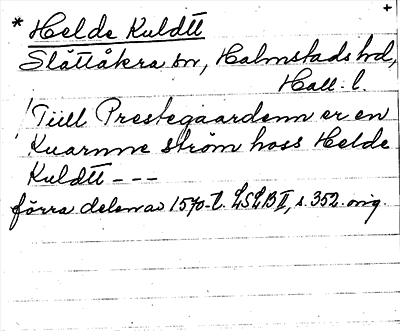 * Helde Kuldtt +
Slättåkra sn, Halmstads hd,
Hall. l.
"Tiill Prestegaardenn er en
Kuarnne ström hoss Helde
Kuldtt - - -
förra delen av 1570-t. LSLB II, s. 352. orig.